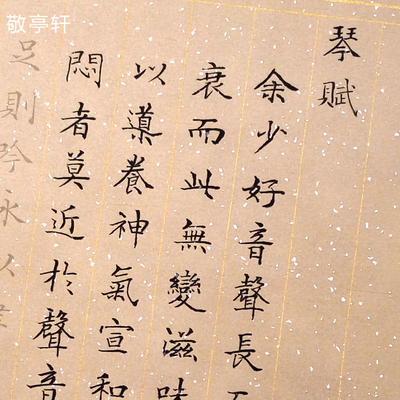 敬亭轩
琴賦
余少好音聲長
衰而此無變滋味
以導養神氣宣和
悶者莫近於聲音
足則吟